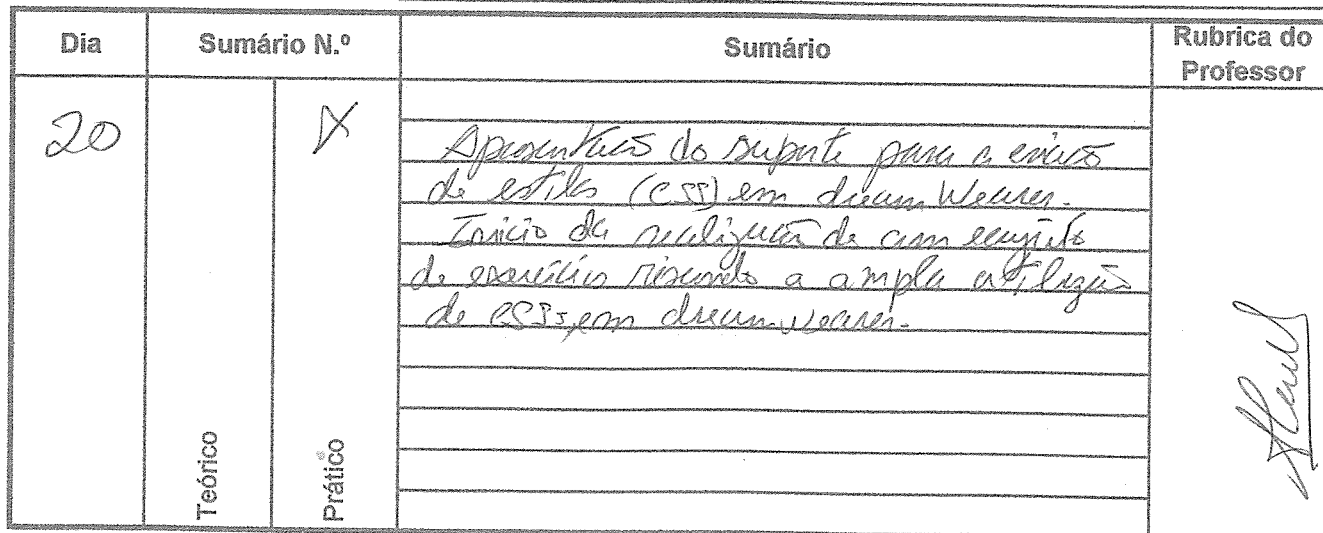 Dia
Sumário N.º
Sumário
Rubrica do
Professor
20
X
Apresentação do suporte para a criação
de estilos (CSS) em dreamWeaver.
Início da realização de um conjunto
de exercícios visando a ampla utilização
de CSSs, em dreamweaver.
Teórico
Prático